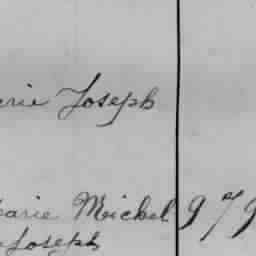 arie Joseph
Marie Michel 979
Joseph